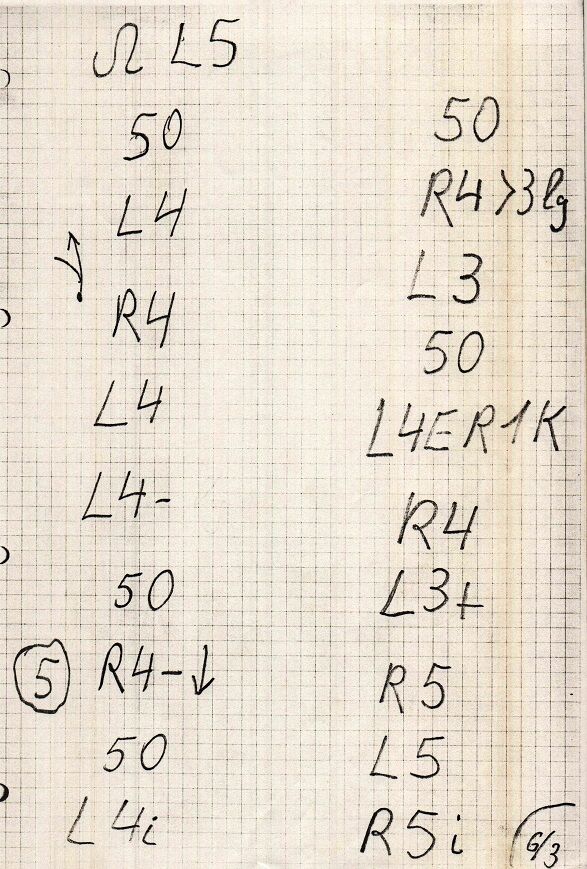 Ω L5
50
L4
R4
L4
L4-
50
5 R4-↓
50
L4i
50
R4>3lg
L3
50
L4ER1K
R4
L3+
R5
L5
R5i
6/3